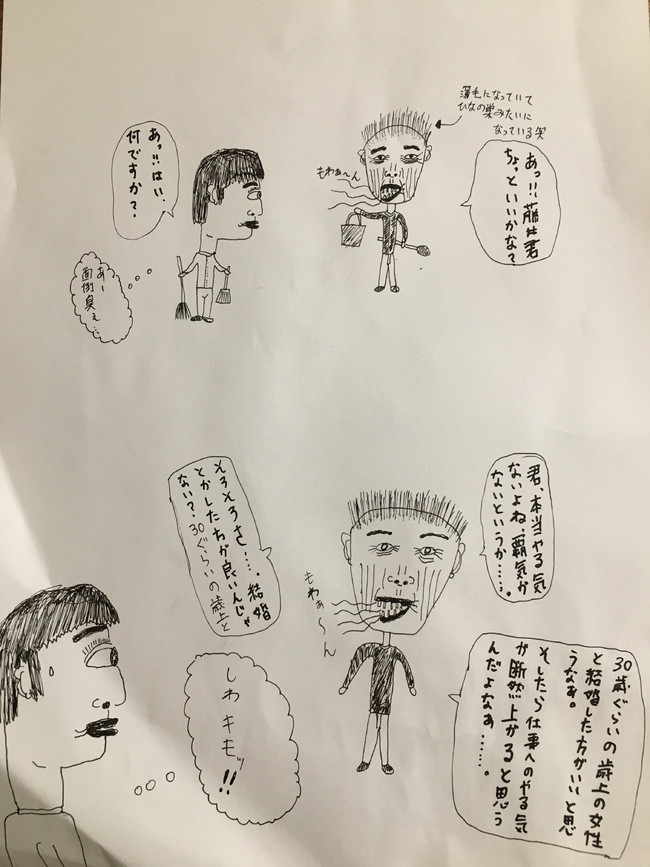 薄毛になっていて
ひなの巣みたいに
なっている笑
あっ!!藤井君
ちょっといいかな?
もわぁ〜ん
あっ!!はい、
何ですか?
あ〜
面倒臭ぇ…
君、本当やる気
ないよね、覇気が
ないというか……。
そろそろさ……結婚
とかした方が良いんじゃ
ない?30ぐらいの歳上と
もわぁ〜ん
30歳ぐらいの歳上の女性
と結婚した方がいいと思
うなぁ。
そしたら仕事へのやる気
が断然上がると思う
んだよなぁ……。
しわキモッ!!